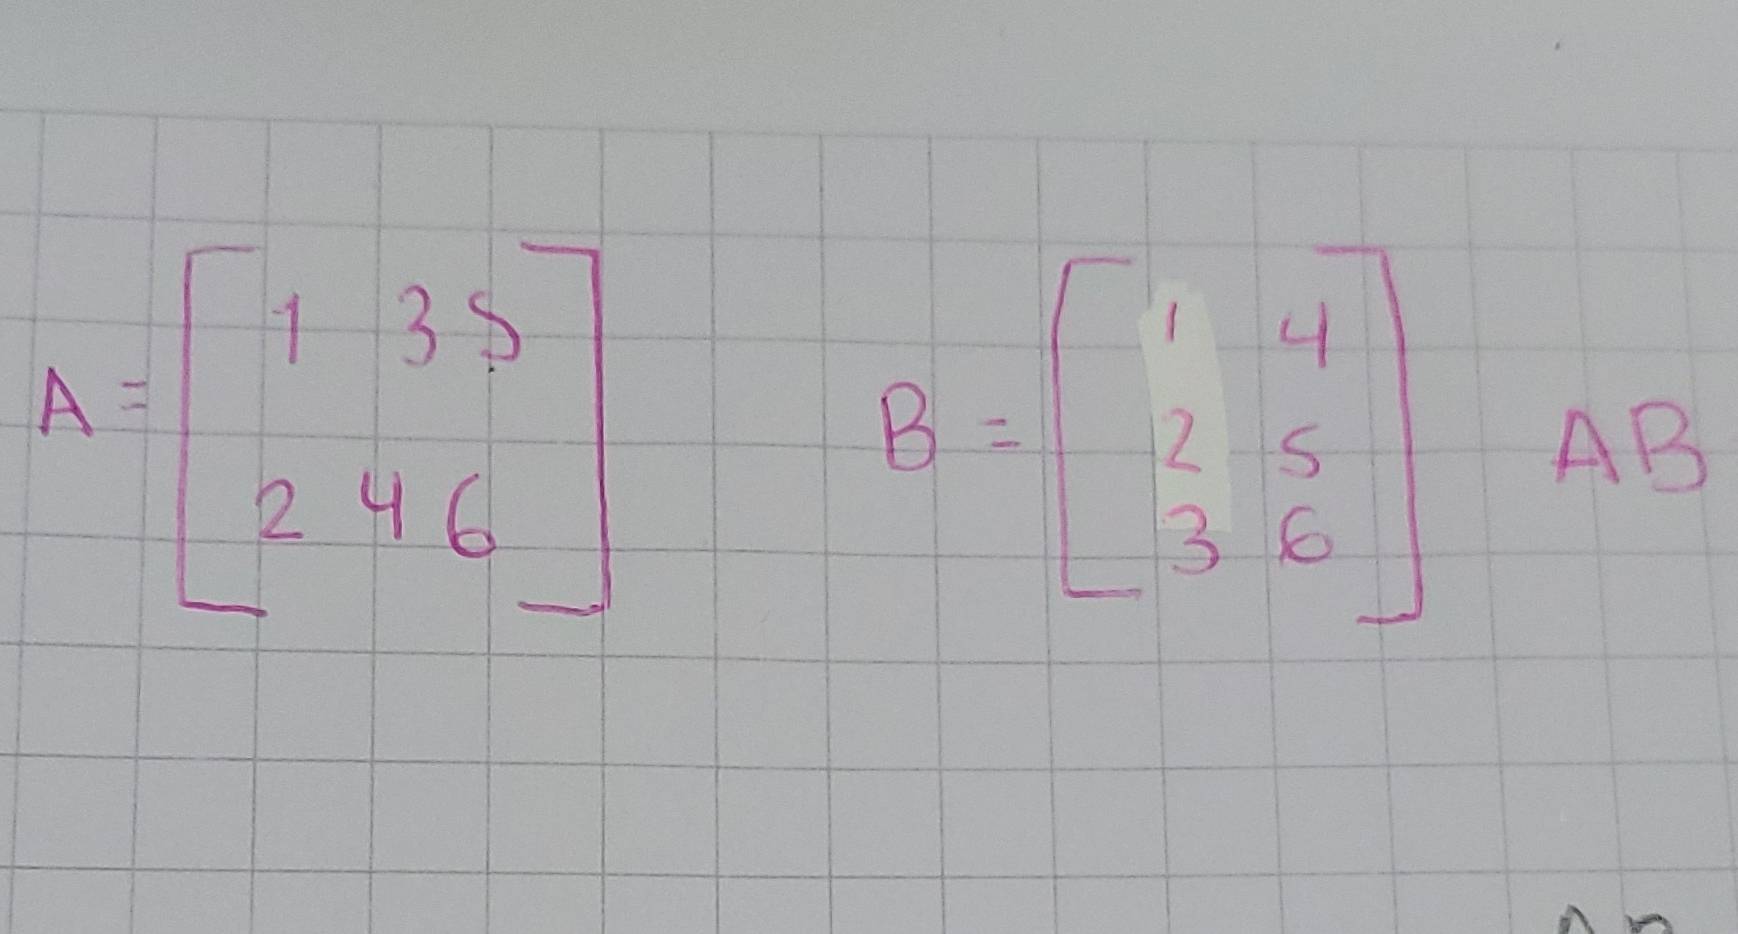 A = [1 3 5
2 4 6]
B = [1 4
2 5
3 6]
AB